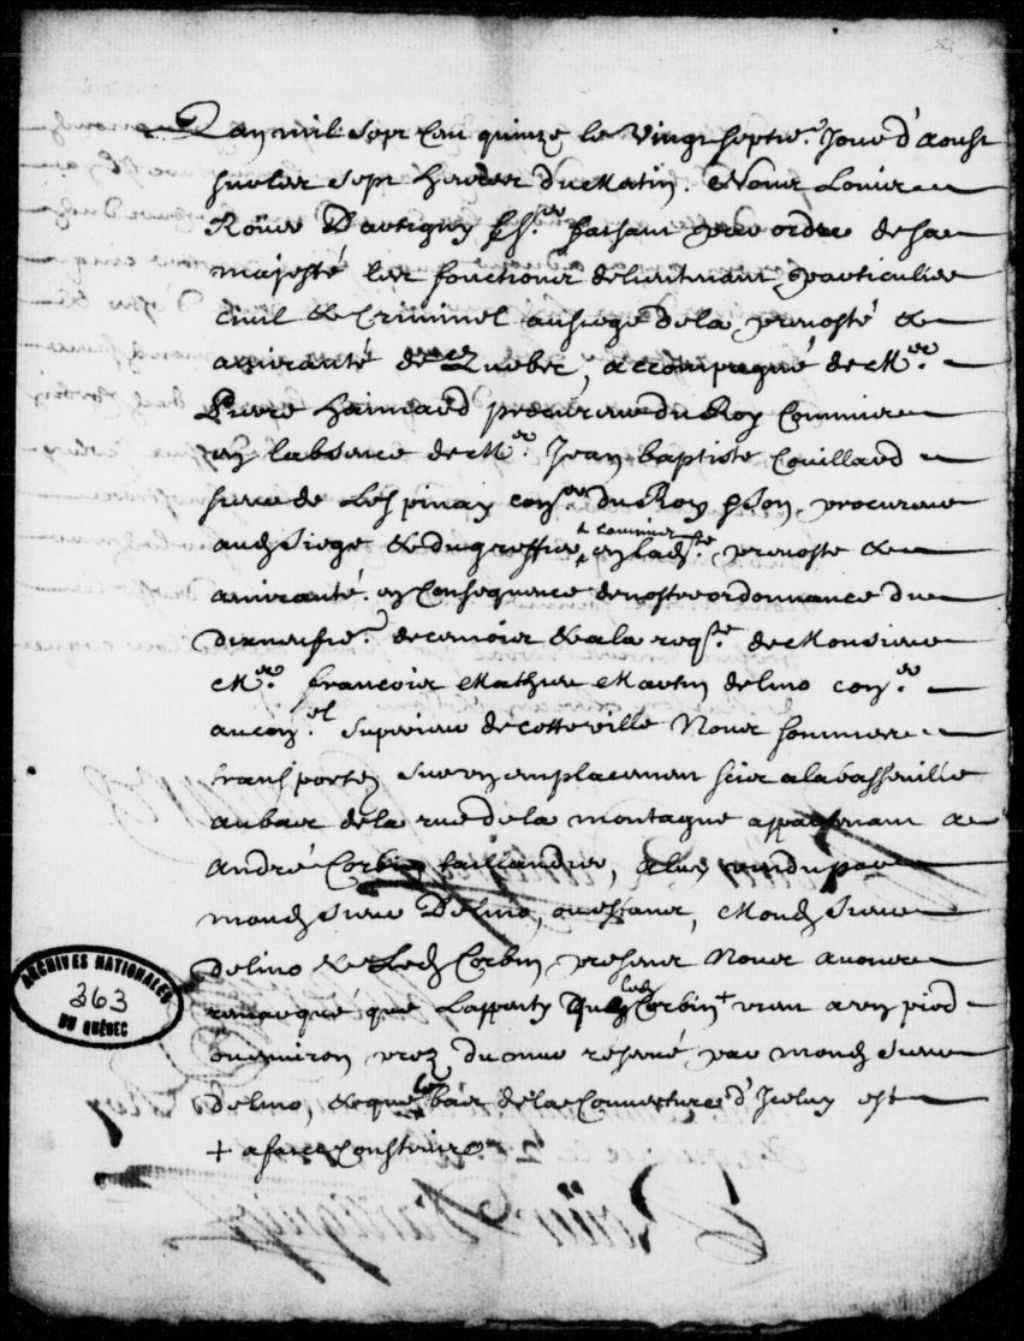 Lan mil Sept Cen quinze le Vingt Septie.e Jour d'aoust
sur les Sept heures du Matin. Nous Louis
Roüer Dartigny faisant par ordre de sa
majesté les fonctions de lieutenant particulier
civil & Criminel au siege de la prevosté &
amirauté de Quebec, accompagné de Mre.
Pierre haimard procureur du Roy Commis
en labsence de Mre. Jean baptiste Couillard
sieur de Lespinay coner. du Roy & son procureur
aud Siege & du greffier commis en lade. prevosté &
amirauté. en Consequence de nostre ordonnance du
dixneufie. de ce mois & a la reqte. de Monsieur
Mre. francois Mathieu Martin delino coner.
au conel. Superieur de cette ville Nous sommes
transportez sur un emplacement scis a la basseville
au bas de la rue de la montagne appartenant a
André Corbin taillandier, a luy vendu par
mond Sieur Delino, ou estant, Mond Sieur
delino & Led Corbin presents Nous avons
remarqué que Lapenty Corbin + vient a un pied
ou environ prez du mur reservé par mond Sieur
delino, & que le bas de la Couverture d'Iceluy est
+ a faire Construire
ARCHIVES NATIONALES
363
DU QUÉBEC